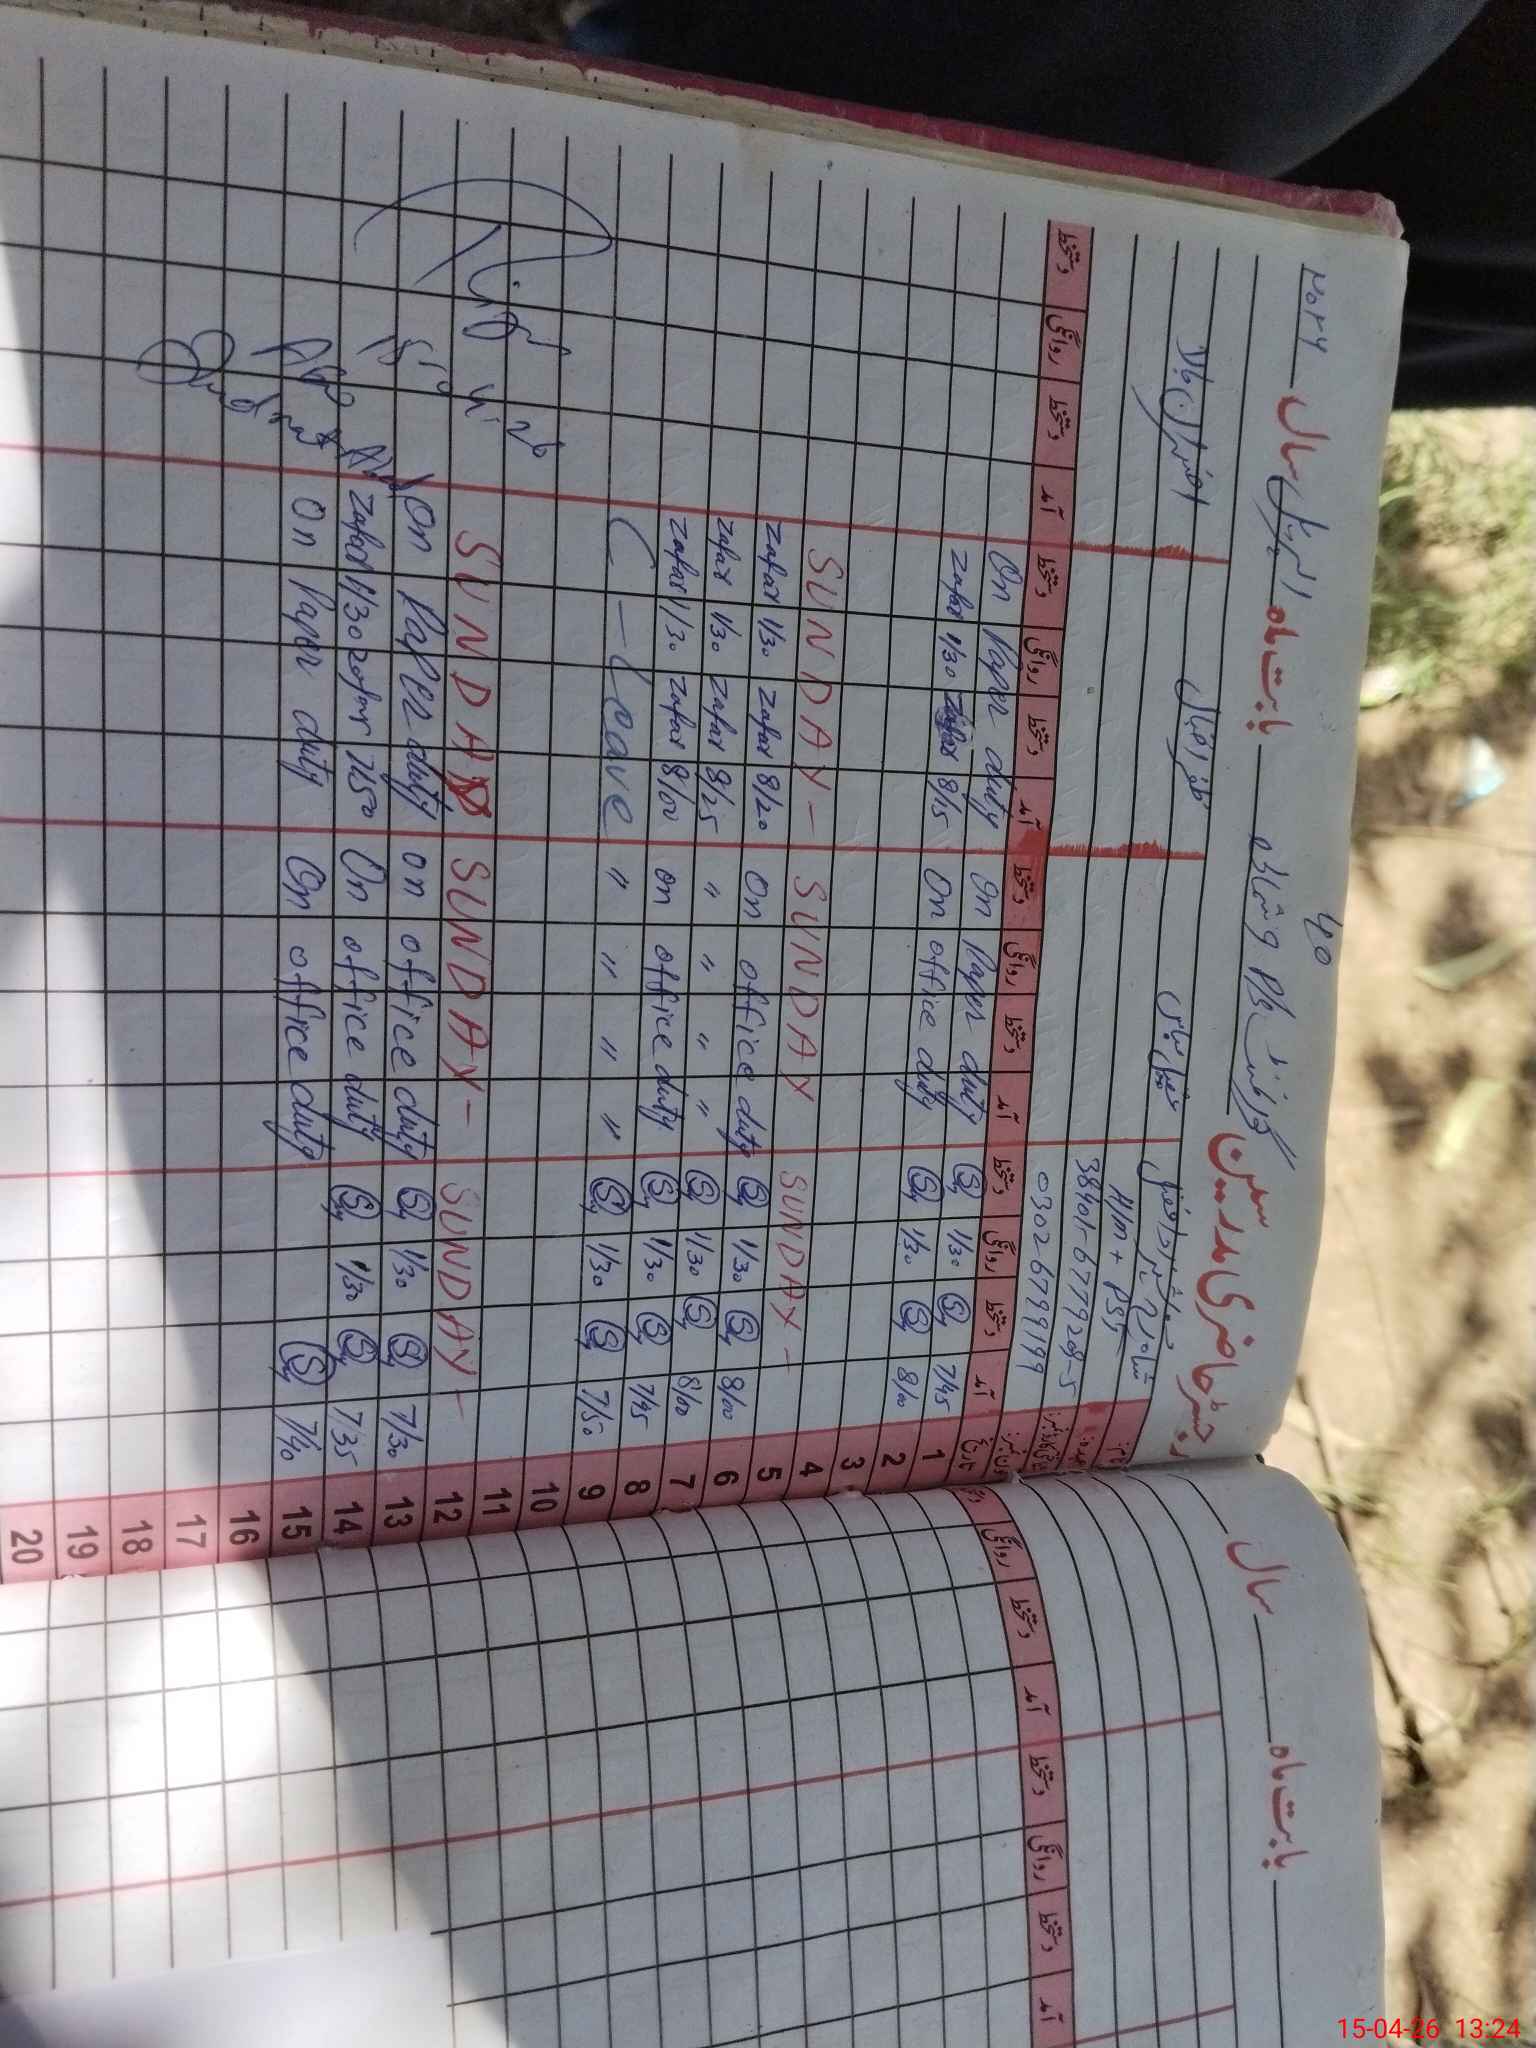 رجسٹر حاضری مدرسین گورنمنٹ بابت ماہ اپریل سال ۲۰۲۶
ظفر اقبال
افسران بالا
H/m + PST
38401-6779208-5
0302-6799199
تاریخ آمد دستخط روانگی دستخط آمد دستخط روانگی دستخط آمد دستخط روانگی دستخط آمد دستخط روانگی دستخط
1 7/45 Sy 1/30 Sy On Paper duty On Paper duty
2 8/00 Sy 1/30 Sy On office duty 8/15 Zafar 1/30 Zafar
3
4
5 SUNDAY - SUNDAY SUNDAY -
6 8/00 Sy 1/30 Sy On office duty 8/20 Zafar 1/30 Zafar
7 8/00 Sy 1/30 Sy " " " 8/25 Zafar 1/30 Zafar
8 7/45 Sy 1/30 Sy on office duty 8/00 Zafar 1/30 Zafar
9 7/50 Sy 1/30 Sy " " " " C - Leave
10
11
12 SUNDAY - SUNDAY - SUNDAY
13 7/30 Sy 1/30 Sy on office duty On Paper duty
14 7/35 Sy 1/30 Sy On office duty 7/50 Zafar 1/30 Zafar
15 7/40 Sy On office duty On Paper duty
16
17
18
19
20
بابت ماہ سال
آمد دستخط روانگی دستخط آمد دستخط روانگی
15-04-26 13:24